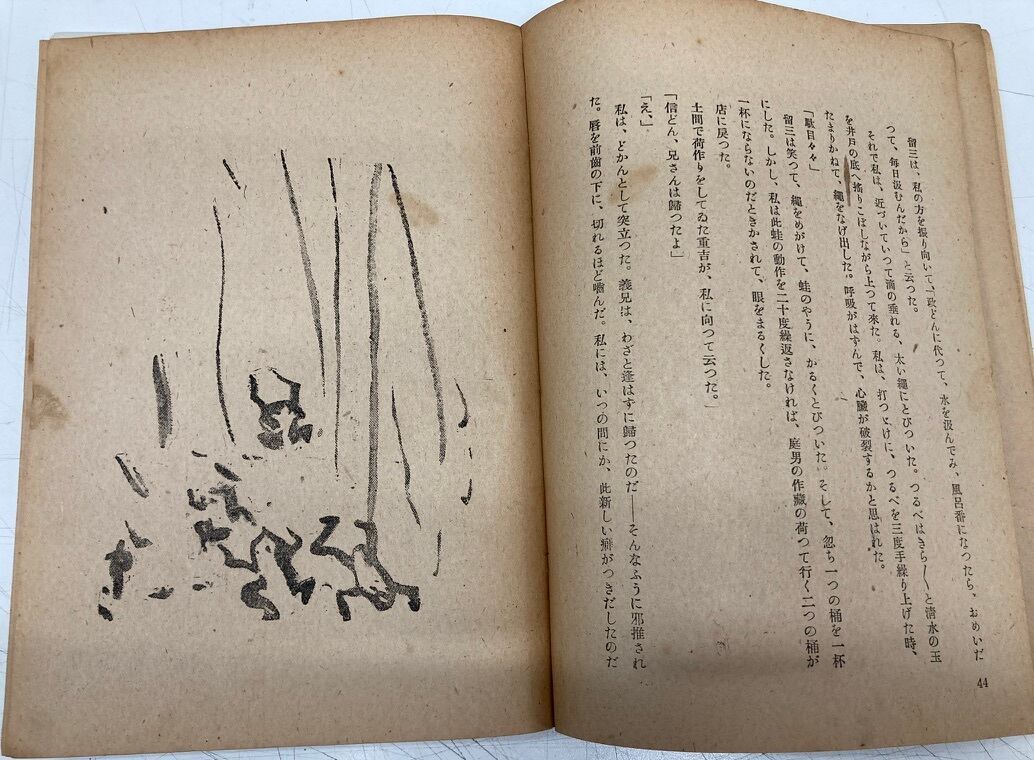 留三は、私の方を振り向いて、「政どんに代つて、水を汲んでみ、風呂番になつたら、おめいだ
つて、毎日汲むんだから」と云つた。
それで私は、近づいていつて滴の垂れる、太い繩にとびついた。つるべはきら〳〵と清水の玉
を井戸の底へ搖りこぼしながら上つて來た。私は、打つ﹅けに、つるべを三度手繰り上げた時、
たまりかねて、繩をなげ出した。呼吸がはずんで、心臟が破裂するかと思はれた。
「駄目々々」
留三は笑つて、繩をめがけて、蛙のやうに、かるくとびついた。そして、忽ち一つの桶を一杯
にした。しかし、私は此蛙の動作を二十度繰返さなければ、庭男の作藏の荷つて行く二つの桶が
一杯にならないのだときかされて、眼をまるくした。
店に戻つた。
土間で荷作りをしてゐた重吉が、私に向つて云つた。」
「信どん、兄さんは歸つたよ」
「え、」
私は、どかんとして突立つた。義兄は、わざと逢はずに歸つたのだ――そんなふうに邪推され
た。唇を前齒の下に、切れるほど嚙んだ。私には、いつの間にか、此新しい癖がつきだしたのだ
44